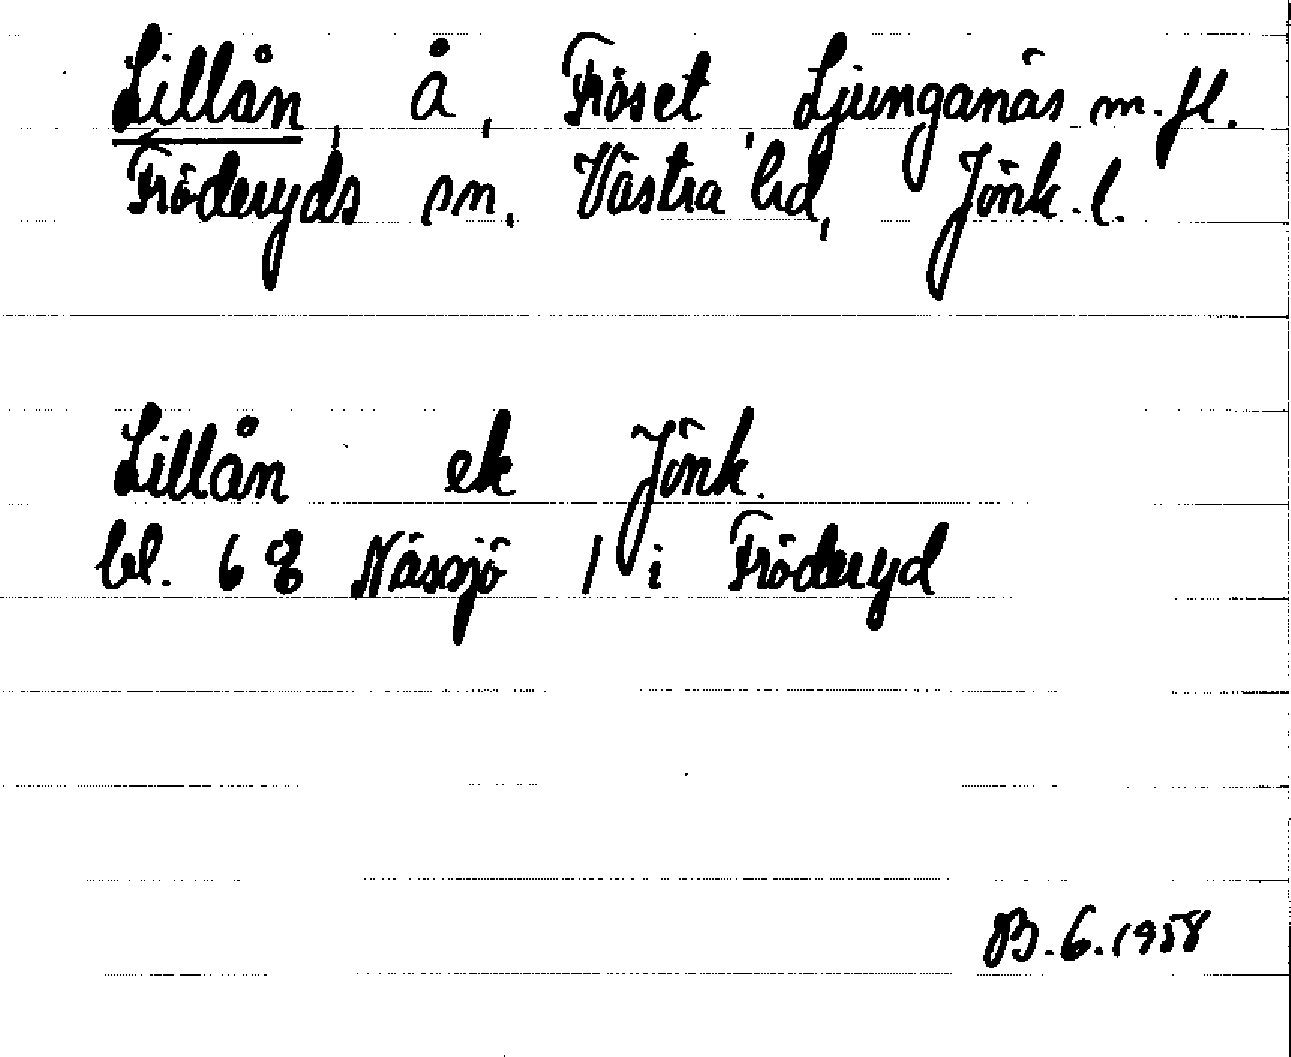 Lillån, å, Fröset, Ljunganäs m.fl.
Fröderyds sn, Västra hd, Jönk.l.
Lillån ek Jönk.
bl. 68 Nässjö / i Fröderyd
B.G. 1958